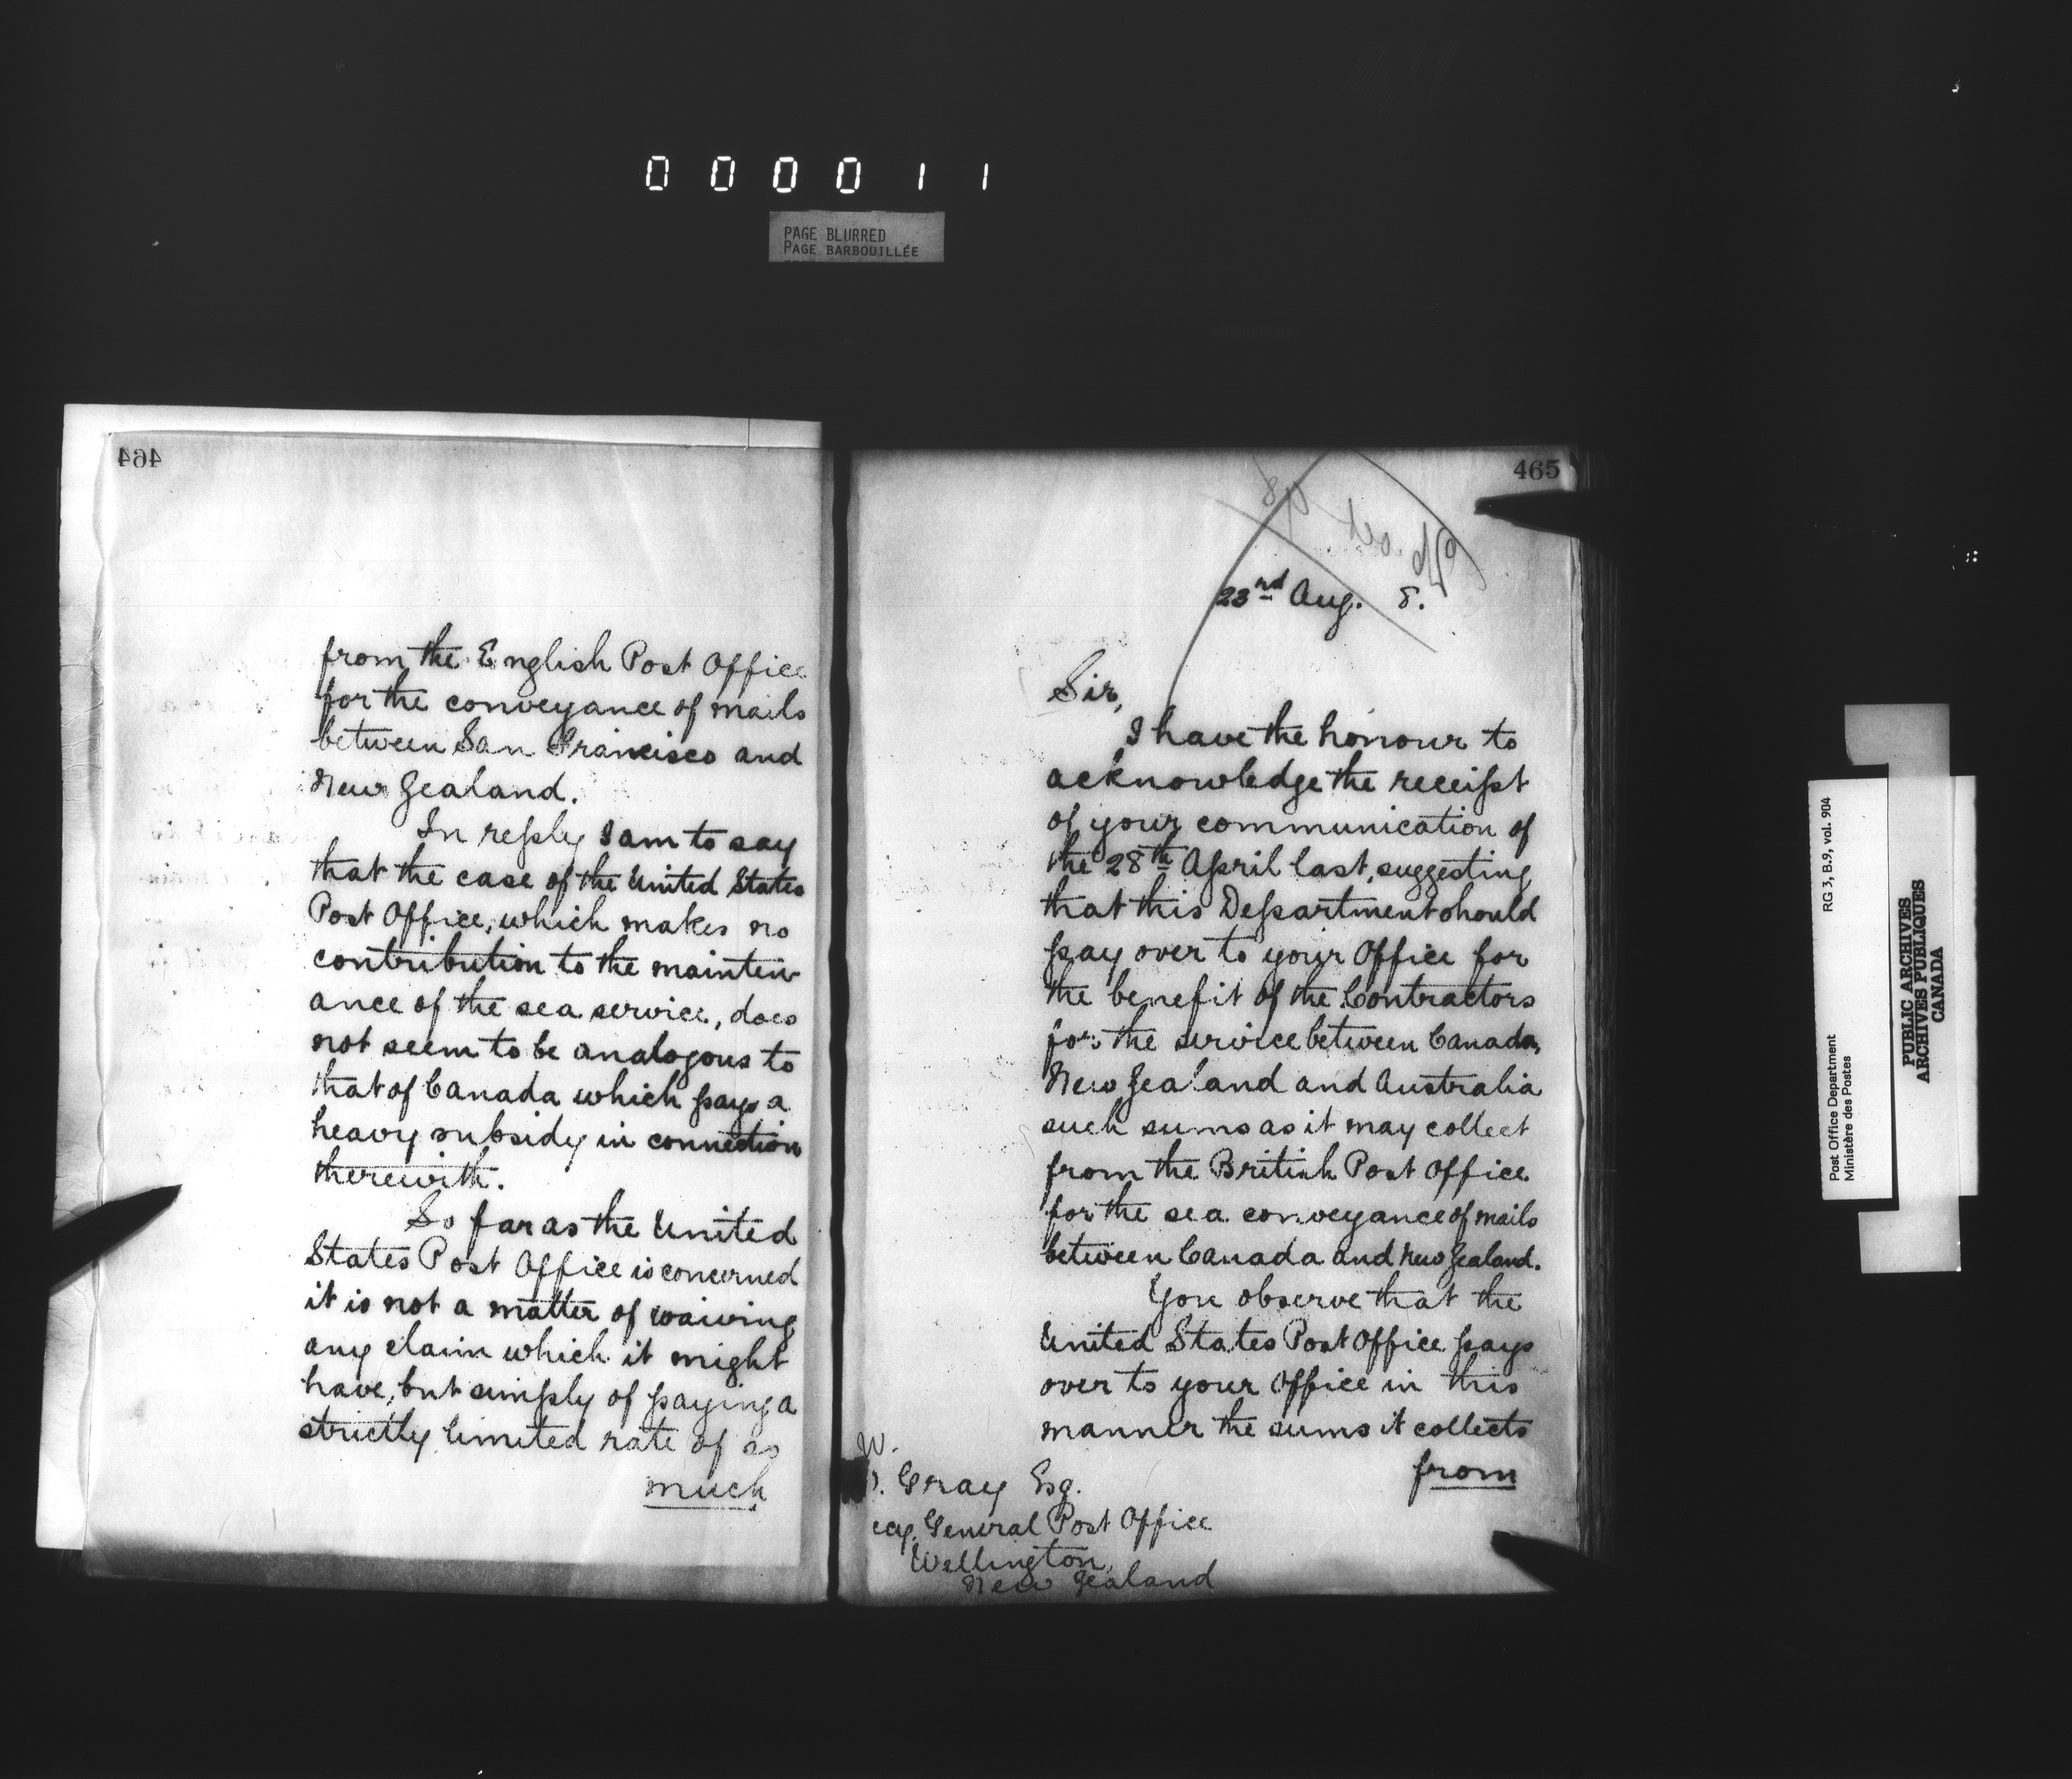 000011
PAGE BLURRED
PAGE BARBOUILLÉE
464
from the English Post Office
for the conveyance of mails
between San Francisco and
New Zealand.
In reply I am to say
that the case of the United States
Post Office, which makes no
contribution to the mainten-
ance of the sea service, does
not seem to be analogous to
that of Canada which pays a
heavy subsidy in connection
therewith.
So far as the United
States Post Office is concerned
it is not a matter of waiving
any claim which it might
have, but simply of paying a
strictly limited rate of as
much
465
23rd Aug. 8.
Sir,
I have the honour to
acknowledge the receipt
of your communication of
the 28th April last, suggesting
that this Department should
pay over to your Office for
the benefit of the Contractors
for the service between Canada,
New Zealand and Australia
such sums as it may collect
from the British Post Office
for the sea conveyance of mails
between Canada and New Zealand.
You observe that the
United States Post Office pays
over to your Office in this
manner the sums it collects
from
W.
Gray Esq.
ecy. General Post Office
Wellington,
New Zealand
RG 3, B.9, vol. 904
Post Office Department
Ministère des Postes
PUBLIC ARCHIVES
ARCHIVES PUBLIQUES
CANADA